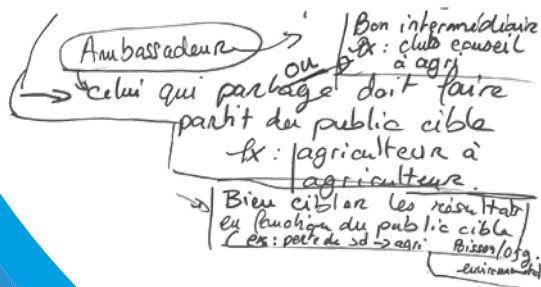 Bon intermédiaire
Ex : club conseil
à agri
Ambassadeur
ou
→ celui qui partage doit faire
partit du public cible
Ex : agriculteur à
agriculteur
→ Bien cibler les résultats
en fonction du public cible
(ex : perte de sol → agri Poisson/
environnement